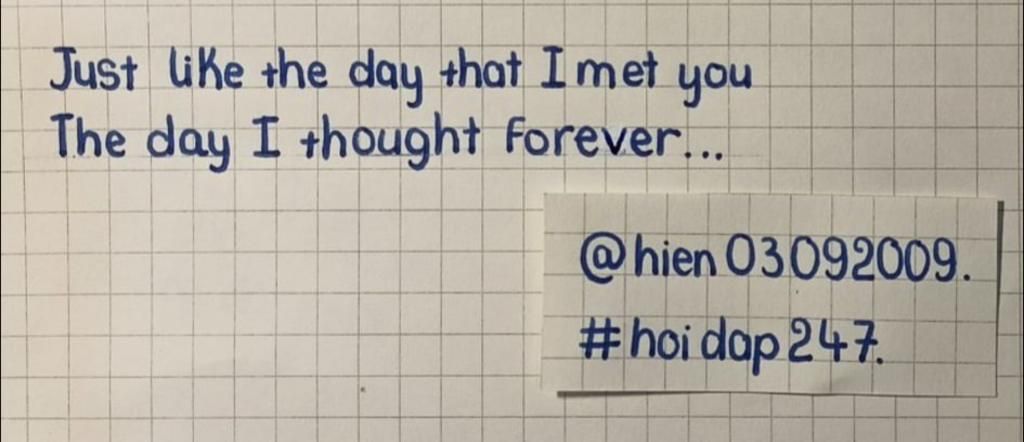 Just like the day that I met you
The day I thought forever...
@hien03092009.
#hoidap247.